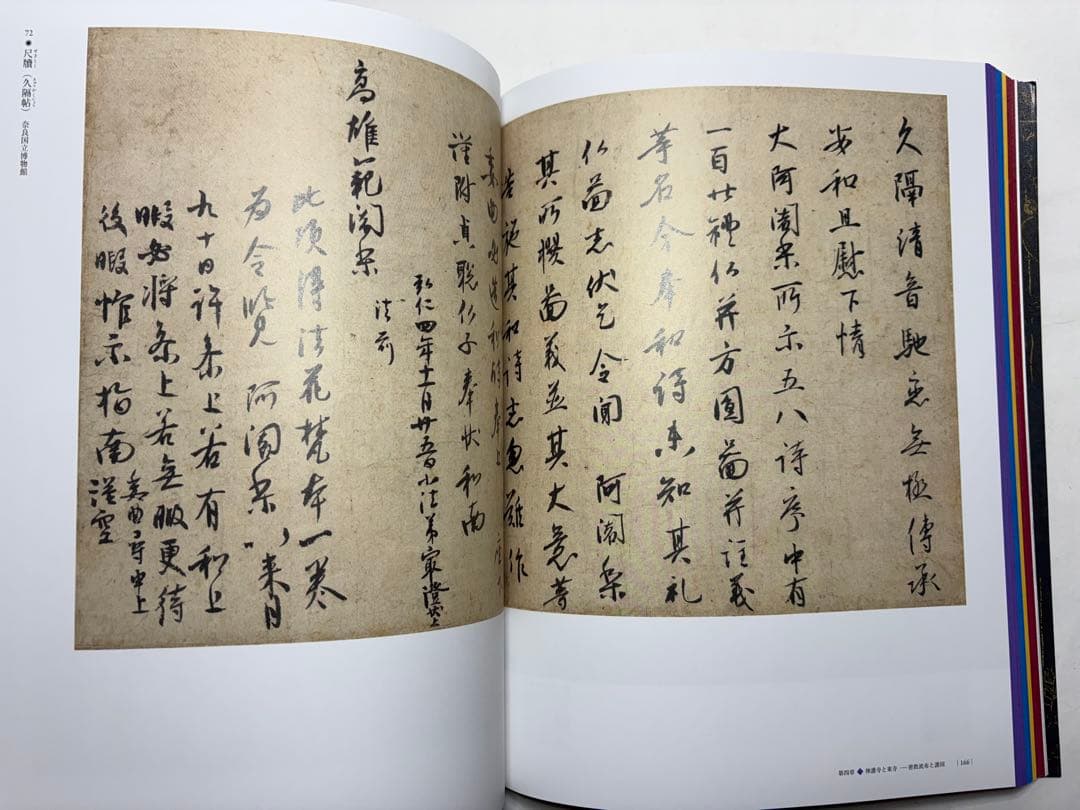 久隔清音馳恋無極傳承
安和且慰下情
大阿闍梨所示五八詩序中有
一百廿禮仏并方圓圖并註義
等名今奉和詩未知其礼
仏圖志伏乞令聞 阿闍梨
其所撰圖義並其大意等
告施其和詩者忽難作
委曲必造和詩奉上 座下
謹附貞聡仏子奉状和南
弘仁四年十一月廿五日小法弟最澄状上
高雄範闍梨 法前
此頃得法花梵本一巻
為令覧 阿闍梨 以来月
九十日許参上若有和上
暇必将参上若無暇更待
後暇惟示指南 委曲尋申上 謹空
72 ◉ 尺牘（久隔帖） 奈良国立博物館
第四章 ◆ 神護寺と東寺──密教流布と護国 |166|